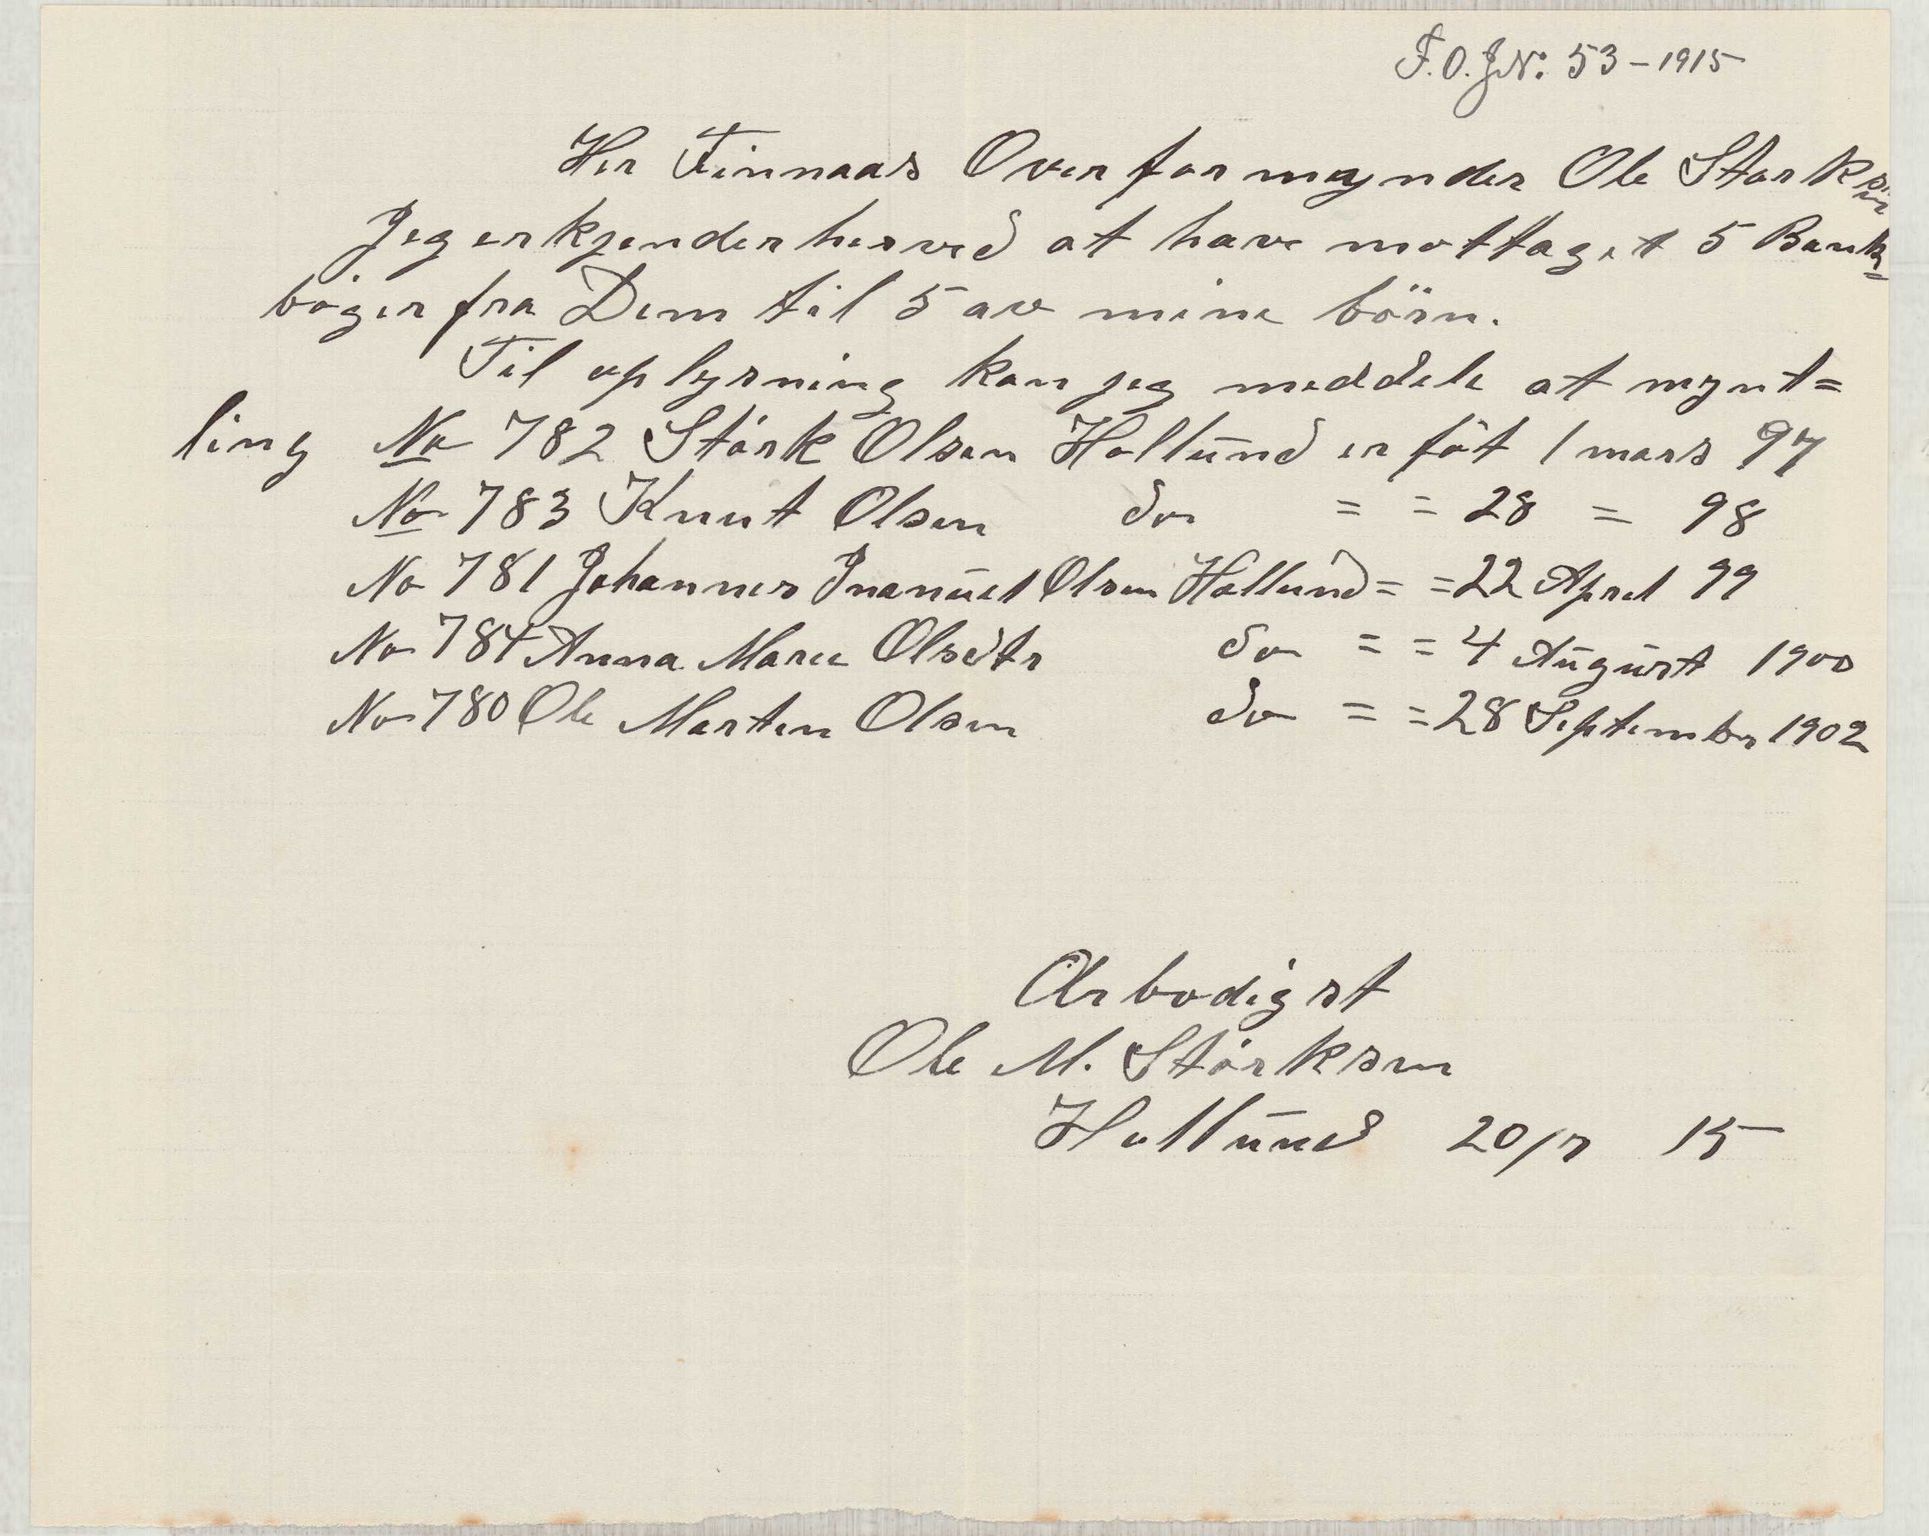 F.O.JN: 53-1915
Her Finnaas Overformynder Ole Storksen
Jeg erkjender herved at have mottaget 5 Bank=
bøger fra Dem til 5 av mine börn.
Til oplysning kan jeg meddele at mynt=
ling No 782 Störk Olsen Hollund er föt 1 mars 97
No 783 Knut Olsen do = = 28 = 98
No 781 Johannes Imanuel Olsen Hollund = = 22 April 99
No 784 Anna Marie Olsdtr do = = 4 August 1900
No 780 Ole Martin Olsen do = = 28 September 1902
Ærbødigst
Ole M. Störksen
Hollund 20/7 15